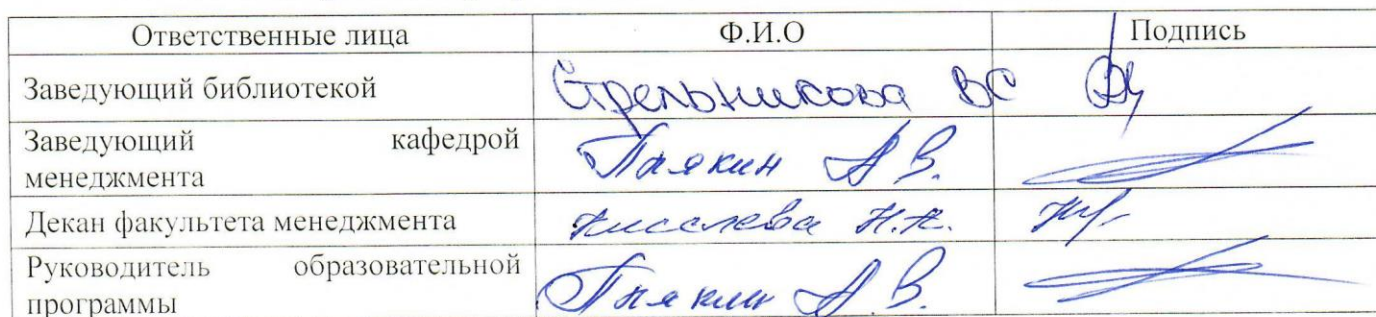 Ответственные лица Ф.И.О Подпись
Заведующий библиотекой Стрельникова ВС
Заведующий кафедрой
менеджмента
А В.
Декан факультета менеджмента Киселева Н.Н.
Руководитель образовательной
программы
А. В.